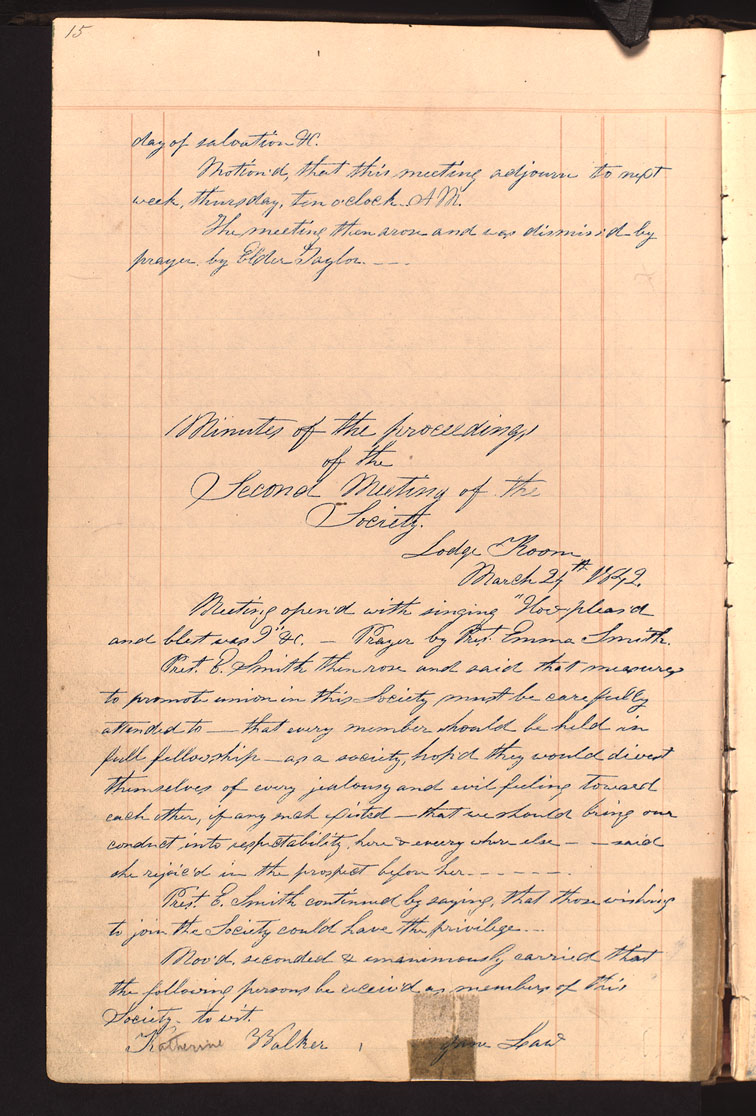 15
day of salvation &c.
Motion'd, that this meeting adjourn to next
week, thursday, ten o'clock A M.
The meeting then arose and was dismiss'd by
prayer by Elder Taylor. — —
Minutes of the proceedings
of the
Second Meeting of the
Society.
Lodge Room
March 24th 1842.
Meeting open'd with singing "How pleas'd
and blest was I" &c. — Prayer by Prest. Emma Smith.
Prest. E. Smith then rose and said that measures
to promote union in this Society must be carefully
attended to — that every member should be held in
full fellowship — as a society, hop'd they would divest
themselves of every jealousy and evil feeling toward
each other, if any such existed — that we should bring our
conduct into respectability, here & every where else — — said
she rejoic'd in the prospect before her. - - - - - -
Prest. E. Smith continued by saying, that those wishing
to join the Society could have the privilege. - -
Mov'd, seconded & unanimously carried that
the following persons be receiv'd as members of this
Society - to wit.
Katherine Walker , Jane Law